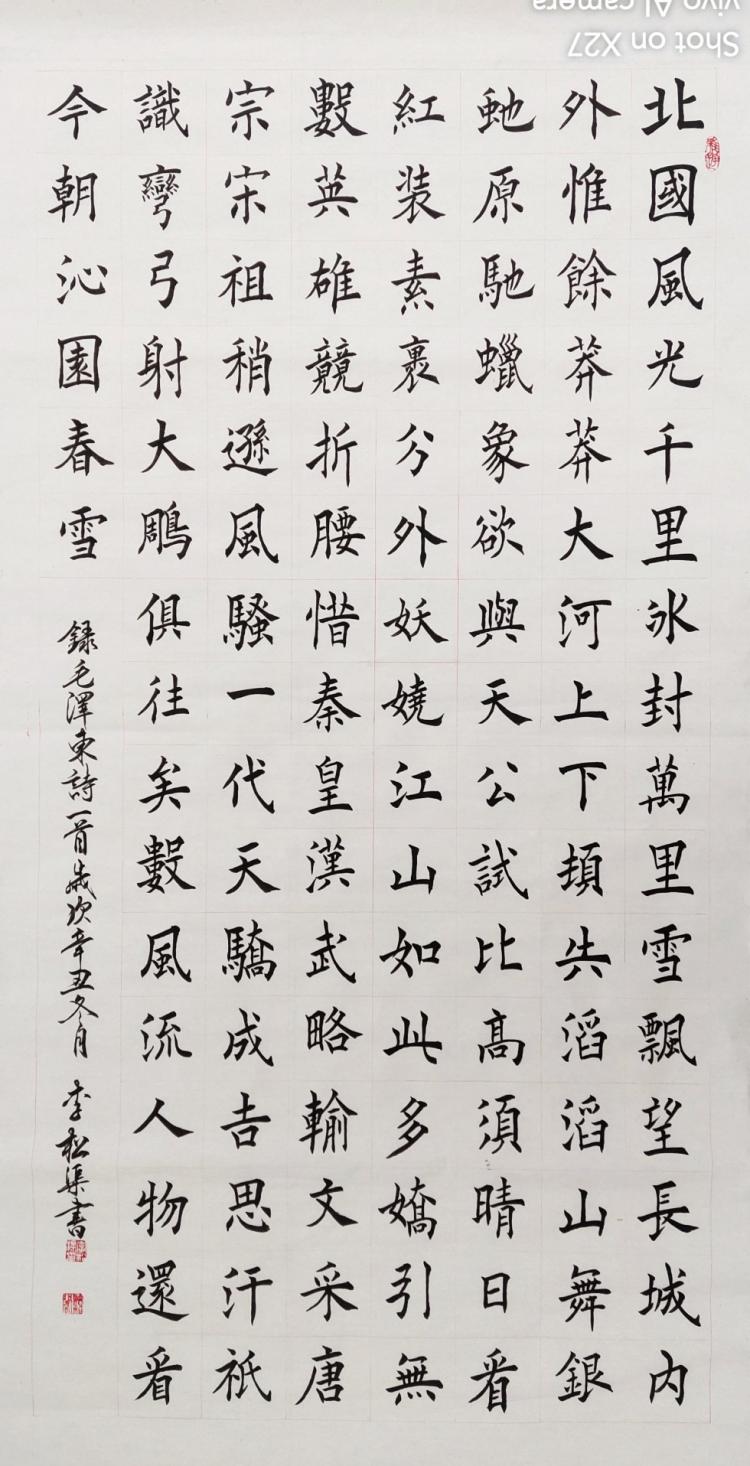 北國風光千里冰封萬里雪飄望長城内
外惟餘莽莽大河上下頓失滔滔山舞銀
虵原馳蠟象欲與天公試比高須晴日看
紅装素裹分外妖嬈江山如此多嬌引無
數英雄競折腰惜秦皇漢武略輸文采唐
宗宋祖稍遜風騷一代天驕成吉思汗衹
識彎弓射大鵰俱往矣數風流人物還看
今朝沁園春雪
録毛澤東詩一首歲次辛丑冬月 李松渠書
Shot on X27
vivo AI camera